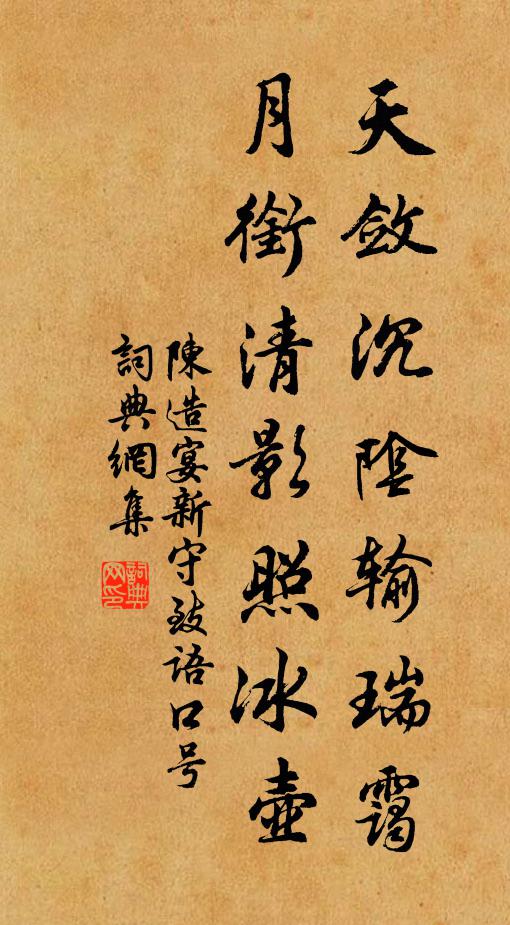 天斂沉陰输瑞靄
月銜清影照冰壺
陳造宴新守致语口号
詞典網集
詞典
网印